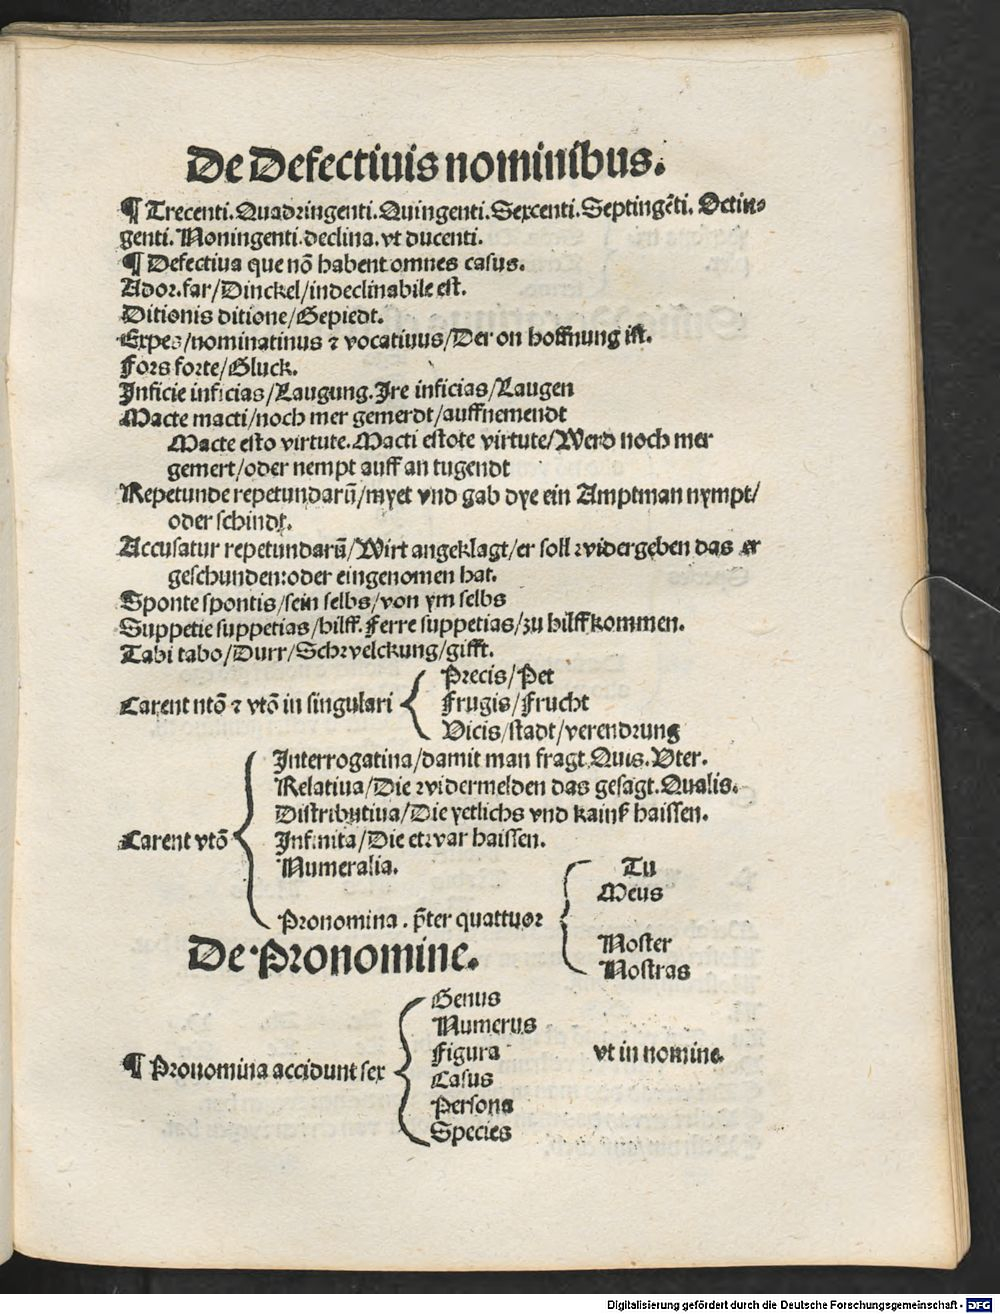 De Defectiuis nominibus.
¶ Trecenti. Quadringenti. Quingenti. Sexcenti. Septingẽti. Octin⸗
genti. Noningenti. declina. vt ducenti.
¶ Defectiua que nõ habent omnes casus.
Ador. far/Dinckel/indeclinabile est.
Ditionis ditione/Gepiedt.
Expes/nominatiuus ⁊ vocatiuus/Der on hoffnung ist.
Fors forte/Gluck.
Inficie inficias/Laugung. Ire inficias/Laugen
Macte macti/noch mer gemerdt/auffnemendt
Macte esto virtute. Macti estote virtute/Werd noch mer
gemert/oder nempt auff an tugendt
Repetunde repetundarũ/myet vnd gab dye ein Amptman nympt/
oder schindt.
Accusatur repetundarũ/Wirt angeklagt/er soll widergeben das er
geschunden: oder eingenomen hat.
Sponte spontis/sein selbs/von ym selbs
Suppetie suppetias/hilff. Ferre suppetias/zu hilff kommen.
Tabi tabo/Durr/Schwelckung/gifft.
Precis/Pet
Carent ntõ ⁊ vtõ in singulari Frugis/Frucht
Vicis/stadt/verendrung
Interrogatiua/damit man fragt. Quis. Vter.
Relatiua/Die widermelden das gesagt. Qualis.
Distributiua/Die yetlichs vnd kainß haissen.
Carent vtõ Infinita/Die etwar haissen.
Numeralia. Tu
Meus
Pronomina. p̃ter quattuor
Noster
De Pronomine.
Nostras
Genus
Numerus
Figura vt in nomine.
¶ Pronomina accidunt sex Casus
Persona
Species
Digitalisierung gefördert durch die Deutsche Forschungsgemeinschaft - DFG